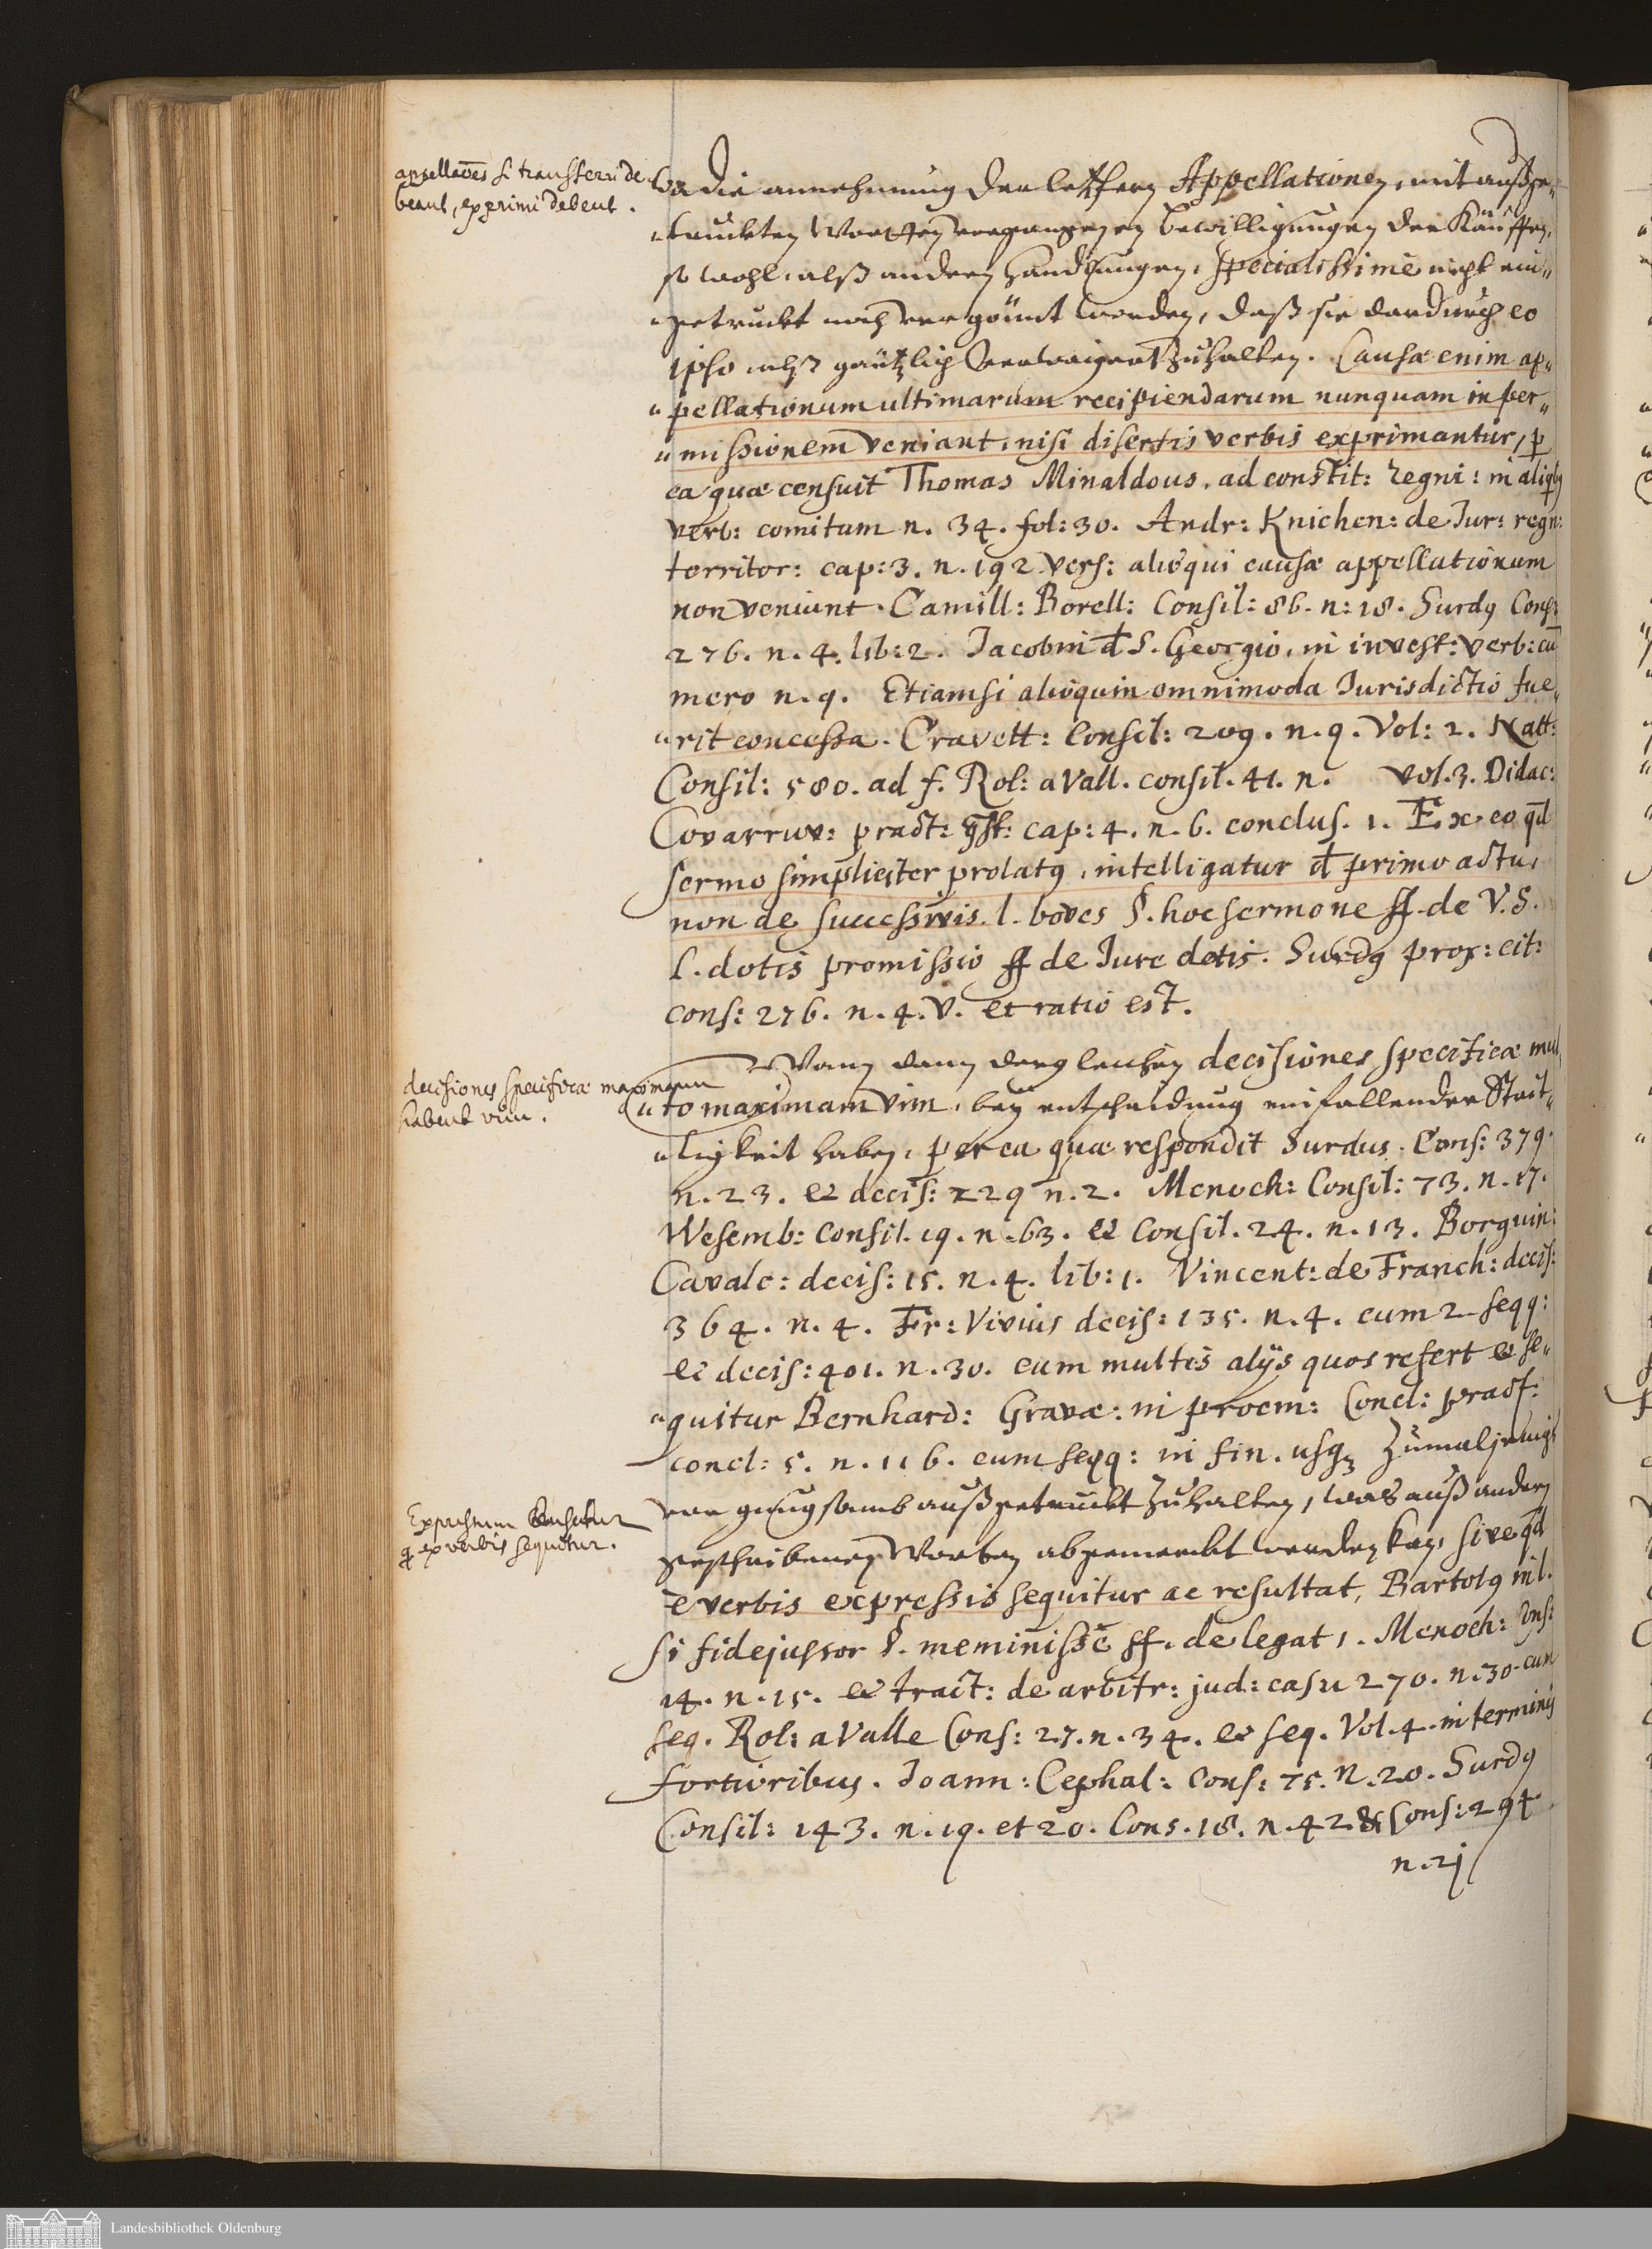 appellaões si transferri de„
beant, exprimi debent.
Wa die annehmung der letstern Appellationen, mit außge„
„truckten Wortten vergangenen bewilligungen der Käuffen,
so wohl alß andern handlungen, specialissimè nicht ein„
„getruckt noch vergönnt worden, daß sie dardurch eo
ipso alß gäntzlich verwaigert zuhalten. Causæ enim ap„
„pellationum ultimarum recipiendarum nunquam in per„
„missionem veniant, nisi disertis verbis exprimantur, p
ea quæ censuit Thomas Minaldous, ad constit: regni: in aliqbq
verb: comitum n. 34. fol: 30. Andr: Knichen: de Jur: regn:
territor: cap: 3. n. 192 vers: alioqui causæ appellationum
non veniunt. Camill: Borell: Consil: 86. n: 18. Surdq Cons:
276. n. 4. lib: 2. Jacobin đ S. Georgio, in invest: verb: cū
mero n. 9. Etiamsi alioquin omnimoda Jurisdictio fue„
„rit concessa. Cravett: Consil: 209. n. 9. Vol: 2. Natt:
Consil: 580. ad f. Rol: a Vall. consil. 41. n. vol. 3. Didac:
Covarruv: pract: qst: cap: 4. n. 6. conclus. 1. Ex eo qd
sermo simpliciter prolatq, intelligatur đ primo actu,
non de successivis. l. boves §. hoc sermone ff. de V. S.
l. dotis promissio ff de Jure dotis. Surdq prox: cit:
cons: 276. n. 4. v. et ratio est.
Wann dann dergleichen decisiones specificæ mul„
decisiones specificæ maximam
habent vim.
„to maximam vim, bey entscheidung einfallender Streit„
„ligkeit haben, per ea quæ respondit Surdus. Cons: 379.
n. 23. et decis: 229 n. 2. Menoch: Consil: 73. n. 17.
Wesemb: Consil. 19. n. 63. et Consil. 24. n. 13. Borgnin:
Cavalc: decis: 15. n. 4. lib: 1. Vincent: de Franch: decis:
364. n. 4. Fr: Vivius decis: 135. n. 4. cum 2 seqq:
et decis: 401. n. 30. cum multis alijs quos refert et se„
„quitur Bernhard: Gravæ: in proem: Concl: pract:
concl: 5. n. 116. cum seqq: in fin. usq3 Zumal jenigs
Expressum censetur
q ex verbis sequitur.
vor gnugsamb außgetruckt zuhalten, was auß andern
geschribenen Worten abgemerckt werden kan, sive qd
e verbis expressis sequitur ac resultat, Bartolq in l.
si fidejussor §. meminisse ff. de legat 1. Menoch: Cons:
14. n. 15. et tract: de arbitr: jud: casu 270. n. 30. cum
seq. Rol: a Valle Cons: 27. n. 34. et seq. Vol. 4. in terminis
fortioribus. Joann: Cephal: Cons: 75. n. 20. Surdq
Consil: 143. n. 19. et 20. Cons. 18. n. 42 & Cons: 294.
n. 2j
Landesbibliothek Oldenburg